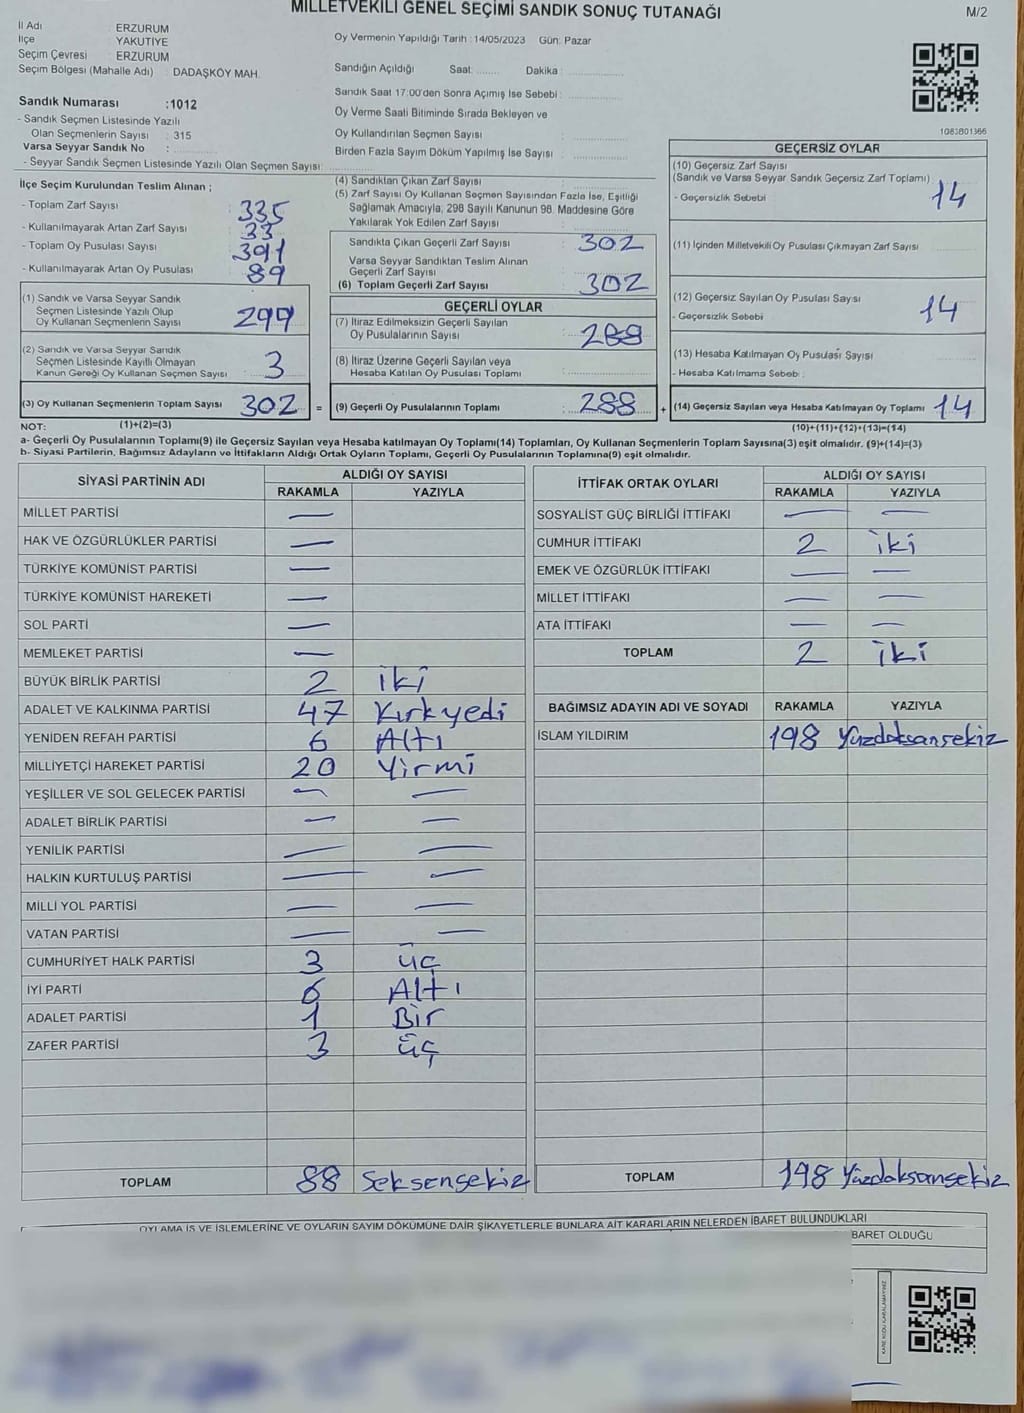 MİLLETVEKİLİ GENEL SEÇİMİ SANDIK SONUÇ TUTANAĞI
M/2
İl Adı ERZURUM
İlçe YAKUTİYE
Seçim Çevresi : ERZURUM
Seçim Bölgesi (Mahalle Adı) : DADAŞKÖY MAH.
Sandık Numarası :1012
- Sandık Seçmen Listesinde Yazılı
Olan Seçmenlerin Sayısı : 315
Varsa Seyyar Sandık No :
- Seyyar Sandık Seçmen Listesinde Yazılı Olan Seçmen Sayısı:
Oy Vermenin Yapıldığı Tarih : 14/05/2023 Gün: Pazar
Sandığın Açıldığı Saat: ........ Dakika : ..............
Sandık Saat 17:00'den Sonra Açımış İse Sebebi :
Oy Verme Saati Bitiminde Sırada Bekleyen ve
Oy Kullandırılan Seçmen Sayısı
Birden Fazla Sayım Döküm Yapılmış İse Sayısı
1083801366
İlçe Seçim Kurulundan Teslim Alınan ;
- Toplam Zarf Sayısı : 335
- Kullanılmayarak Artan Zarf Sayısı : 33
- Toplam Oy Pusulası Sayısı : 391
- Kullanılmayarak Artan Oy Pusulası : 89
(1) Sandık ve Varsa Seyyar Sandık
Seçmen Listesinde Yazılı Olup
Oy Kullanan Seçmenlerin Sayısı 299
(2) Sandık ve Varsa Seyyar Sandık
Seçmen Listesinde Kayıtlı Olmayan
Kanun Gereği Oy Kullanan Seçmen Sayısı 3
(3) Oy Kullanan Seçmenlerin Toplam Sayısı 302 =
(4) Sandıktan Çıkan Zarf Sayısı
(5) Zarf Sayısı Oy Kullanan Seçmen Sayısından Fazla İse, Eşitliği
Sağlamak Amacıyla, 298 Sayılı Kanunun 98. Maddesine Göre
Yakılarak Yok Edilen Zarf Sayısı
Sandıkta Çıkan Geçerli Zarf Sayısı : 302
Varsa Seyyar Sandıktan Teslim Alınan
Geçerli Zarf Sayısı
(6) Toplam Geçerli Zarf Sayısı : 302
GEÇERLİ OYLAR
(7) İtiraz Edilmeksizin Geçerli Sayılan
Oy Pusulalarının Sayısı : 288
(8) İtiraz Üzerine Geçerli Sayılan veya
Hesaba Katılan Oy Pusulası Toplamı
(9) Geçerli Oy Pusulalarının Toplamı : 288 +
GEÇERSİZ OYLAR
(10) Geçersiz Zarf Sayısı
(Sandık ve Varsa Seyyar Sandık Geçersiz Zarf Toplamı)
- Geçersizlik Sebebi : 14
(11) İçinden Milletvekili Oy Pusulası Çıkmayan Zarf Sayısı
(12) Geçersiz Sayılan Oy Pusulası Sayısı
- Geçersizlik Sebebi : 14
(13) Hesaba Katılmayan Oy Pusulası Sayısı
- Hesaba Katılmama Sebebi :
(14) Geçersiz Sayılan veya Hesaba Katılmayan Oy Toplamı 14
NOT: (1)+(2)=(3) (10)+(11)+(12)+(13)=(14)
a- Geçerli Oy Pusulalarının Toplamı(9) ile Geçersiz Sayılan veya Hesaba katılmayan Oy Toplamı(14) Toplamları, Oy Kullanan Seçmenlerin Toplam Sayısına(3) eşit olmalıdır. (9)+(14)=(3)
b- Siyasi Partilerin, Bağımsız Adayların ve İttifakların Aldığı Ortak Oyların Toplamı, Geçerli Oy Pusulalarının Toplamına(9) eşit olmalıdır.
SİYASİ PARTİNİN ADI ALDIĞI OY SAYISI
RAKAMLA YAZIYLA
MİLLET PARTİSİ —
HAK VE ÖZGÜRLÜKLER PARTİSİ —
TÜRKİYE KOMÜNİST PARTİSİ —
TÜRKİYE KOMÜNİST HAREKETİ —
SOL PARTİ —
MEMLEKET PARTİSİ —
BÜYÜK BİRLİK PARTİSİ 2 iki
ADALET VE KALKINMA PARTİSİ 47 Kırkyedi
YENİDEN REFAH PARTİSİ 6 Altı
MİLLİYETÇİ HAREKET PARTİSİ 20 Yirmi
YEŞİLLER VE SOL GELECEK PARTİSİ — —
ADALET BİRLİK PARTİSİ — —
YENİLİK PARTİSİ — —
HALKIN KURTULUŞ PARTİSİ — —
MİLLİ YOL PARTİSİ — —
VATAN PARTİSİ — —
CUMHURİYET HALK PARTİSİ 3 üç
İYİ PARTİ 6 Altı
ADALET PARTİSİ 1 Bir
ZAFER PARTİSİ 3 üç
TOPLAM 88 Seksensekiz
İTTİFAK ORTAK OYLARI ALDIĞI OY SAYISI
RAKAMLA YAZIYLA
SOSYALİST GÜÇ BİRLİĞİ İTTİFAKI — —
CUMHUR İTTİFAKI 2 iki
EMEK VE ÖZGÜRLÜK İTTİFAKI — —
MİLLET İTTİFAKI — —
ATA İTTİFAKI — —
TOPLAM 2 iki
BAĞIMSIZ ADAYIN ADI VE SOYADI RAKAMLA YAZIYLA
İSLAM YILDIRIM 198 Yüzdoksansekiz
TOPLAM 198 Yüzdoksansekiz
OYLAMA İŞ VE İŞLEMLERİNE VE OYLARIN SAYIM DÖKÜMÜNE DAİR ŞİKAYETLERLE BUNLARA AİT KARARLARIN NELERDEN İBARET BULUNDUKLARI
BARET OLDUĞU
KARE KODU KARALAMAYINIZ